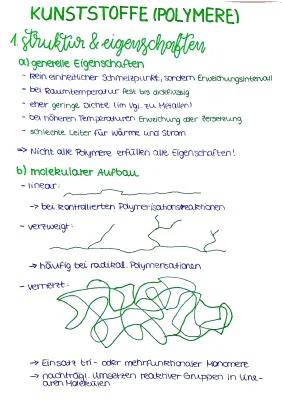 KUNSTSTOFFE (POLYMERE)
1. Struktur & Eigenschaften
a) generelle Eigenschaften
- kein einheitlicher Schmelzpunkt, sondern Erweichungsintervall
- bei Raumtemperatur fest bis dickflüssig
- eher geringe Dichte (im Vgl. zu Metallen)
- bei höheren Temperaturen Erweichung oder Zersetzung
- schlechte Leiter für Wärme und Strom
⇒ Nicht alle Polymere erfüllen alle Eigenschaften!
b) molekularer Aufbau
- linear:
→ bei kontrollierten Polymerisationsreaktionen
- verzweigt:
→ häufig bei radikal. Polymerisationen
- vernetzt:
→ Einsatz tri- oder mehrfunktionaler Monomere
→ nachträgl. Umsetzen reaktiver Gruppen in line-
aren Molekülen